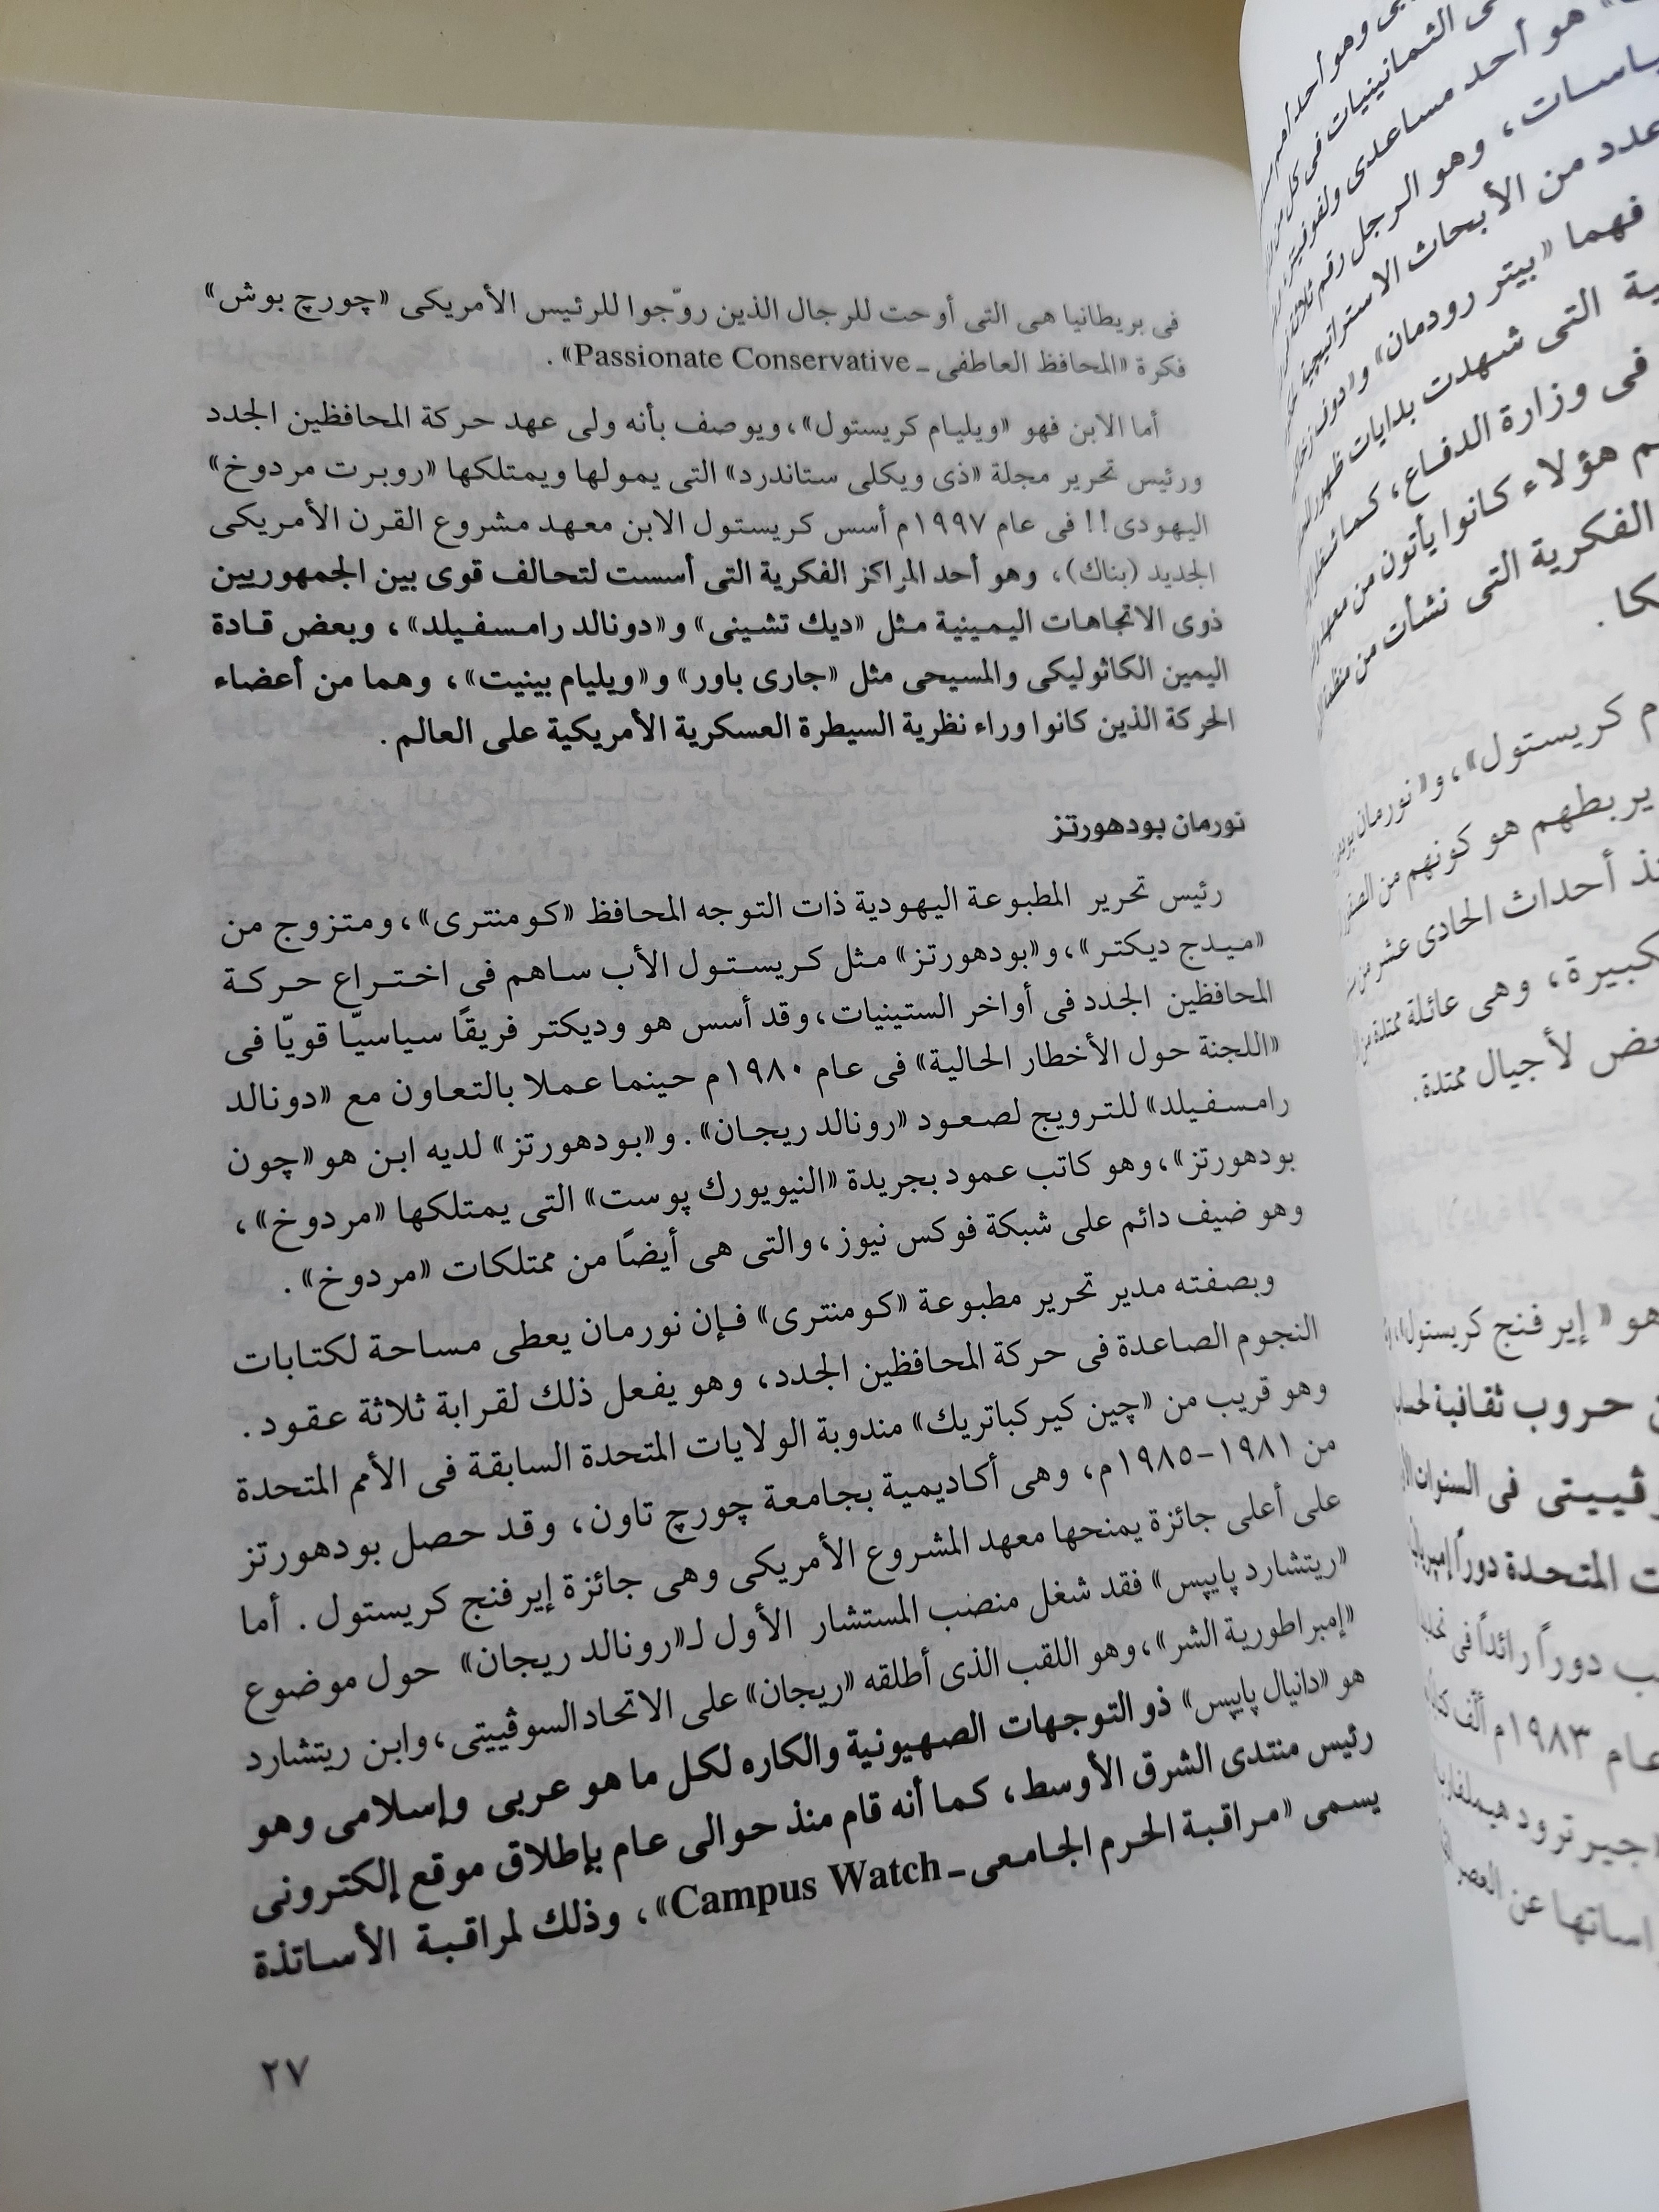 فى بريطانيا هى التى أوحت للرجال الذين روّجوا للرئيس الأمريكى «چورچ بوش»
فكرة «المحافظ العاطفى ـ Passionate Conservative» .
أما الابن فهو «ويليام كريستول»، ويوصف بأنه ولى عهد حركة المحافظين الجدد
ورئيس تحرير مجلة «ذى ويكلى ستاندرد» التى يمولها ويمتلكها «روبرت مردوخ»
اليهودى!! فى عام ١٩٩٧م أسس كريستول الابن معهد مشروع القرن الأمريكى
الجديد (بناك)، وهو أحد المراكز الفكرية التى أسست لتحالف قوى بين الجمهوريين
ذوى الاتجاهات اليمينية مثل «ديك تشينى» و«دونالد رامسفيلد» ، وبعض قادة
اليمين الكاثوليكى والمسيحى مثل «جارى باور» و«ويليام بينيت» ، وهما من أعضاء
الحركة الذين كانوا وراء نظرية السيطرة العسكرية الأمريكية على العالم .
نورمان بودهورتز
رئيس تحرير المطبوعة اليهودية ذات التوجه المحافظ «كومنترى»، ومتزوج من
«ميدج ديكتر»، و«بودهورتز» مثل كريستول الأب ساهم فى اختراع حركة
المحافظين الجدد فى أواخر الستينيات، وقد أسس هو وديكتر فريقًا سياسيًا قويًا فى
«اللجنة حول الأخطار الحالية» فى عام ١٩٨٠م حينما عملا بالتعاون مع «دونالد
رامسفيلد» للترويج لصعود «رونالد ريجان» . و«بودهورتز» لديه ابن هو «چون
بودهورتز»، وهو كاتب عمود بجريدة «النيويورك پوست» التى يمتلكها «مردوخ» ،
وهو ضيف دائم على شبكة فوكس نيوز، والتى هى أيضًا من ممتلكات «مردوخ» .
وبصفته مدير تحرير مطبوعة «كومنترى» فإن نورمان يعطى مساحة لكتابات
النجوم الصاعدة فى حركة المحافظين الجدد، وهو يفعل ذلك لقرابة ثلاثة عقود .
وهو قريب من «چين كيركباتريك» مندوبة الولايات المتحدة السابقة فى الأمم المتحدة
من ١٩٨١-١٩٨٥م، وهى أكاديمية بجامعة چورچ تاون، وقد حصل بودهورتز
على أعلى جائزة يمنحها معهد المشروع الأمريكى وهى جائزة إيرفنج كريستول . أما
«ريتشارد پاپيس» فقد شغل منصب المستشار الأول لـ«رونالد ريجان» حول موضوع
«إمبراطورية الشر»، وهو اللقب الذى أطلقه «ريجان» على الاتحاد السوڤييتى، وابن ريتشارد
هو «دانيال پاپيس» ذو التوجهات الصهيونية والكاره لكل ما هو عربى وإسلامى وهو
رئيس منتدى الشرق الأوسط، كما أنه قام منذ حوالى عام بإطلاق موقع إلكترونى
يسمى «مراقبة الحرم الجامعى ـ Campus Watch» ، وذلك لمراقبة الأساتذة
٢٧
هو أحد مساعدى
وهو الرجل رقم
عدد من الأبحاث الاستراتيجية
فهما «بيتر رودمان»
التى شهدت بدايات
فى وزارة الدفاع، كما
هؤلاء كانوا يأتون من
الفكرية التى نشأت من
كريستول»، و«نورمان
يربطهم هو كونهم من
أحداث الحادى عشر من
وهى عائلة ممتدة
لأجيال ممتدة .
هو « إيرفنج كريستول»
حروب ثقافية
فى السنوات
المتحدة دورًا
دورًا رائدًا فى
عام ١٩٨٣م ألّف
عن العصر